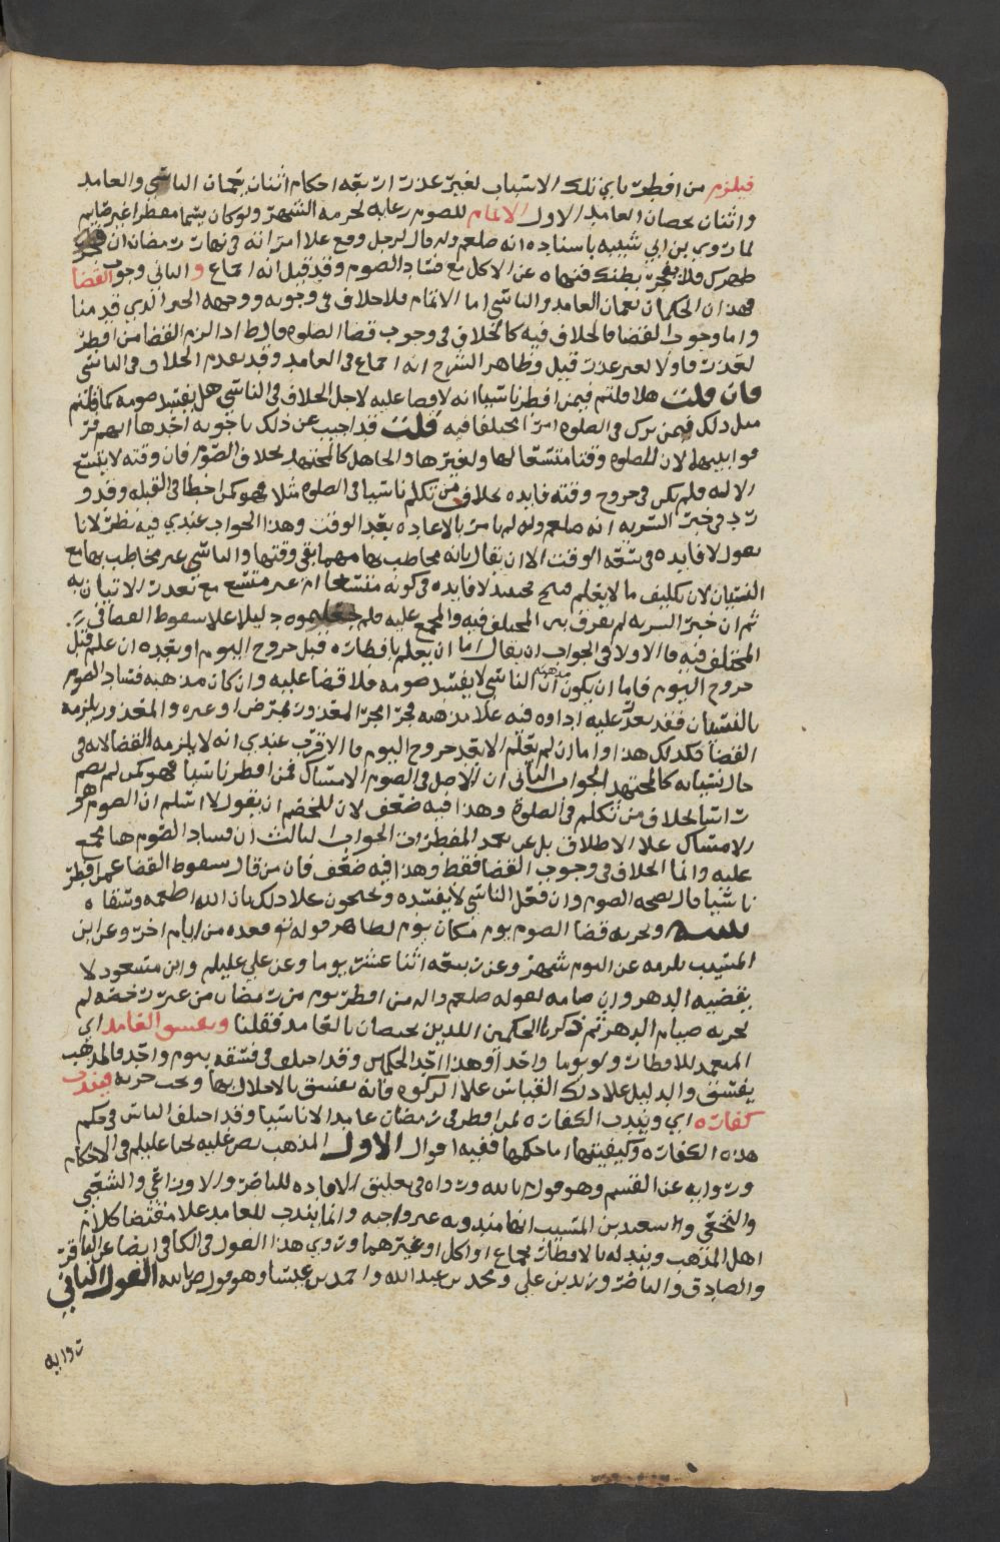 فيلزم من افطر باي تلك الاسباب لغير عذر اربعه احكام اثنان يعمان الناسي والعامد
واثنان يخصان العامد الاول الاتمام للصوم رعايه لحرمه الشهر ولو كان يسما مفطرا غير صايم
لما روى بن ابي شيبه باسناده انه صلعم وله قال لرجل وقع علا امراته في نهار رمضان ان فجر
ظهرك فلا يفجر بطنك فنهاه عن الاكل مع فساد الصوم وقد قيل انه اجماع و الثاني وجوب القضا
فهذان الحكمان يعمان العامد والناسي اما الاتمام فلا خلاف في وجوبه ووجهه الخبر الذي قدمنا
واما وجوب القضا فالخلاف فيه كالخلاف في وجوب قضا الصلوه قال ط اذا لزم القضا من افطر
لعذر فاولا لغير عذر قيل وظاهر الشرح انه اجماع في العامد وقد تقدم الخلاف في الناسي
فان قلت هلا قلتم فيمن افطر ناسيا انه لا قضا عليه لاجل الخلاف في الناسي هل يفسد صومه كما قلتم
مثل ذلك فيمن ترك في الصلوه امرا مختلفا فيه قلت قد اجيب عن ذلك باجوبه احدها انهم فر
قوا بينهما لان للصلوه وقتا متسعا لها ولغيرها والجاهل كالمجتهد بخلاف الصوم فان وقته لا يتسع
الا له فلم يكن في خروج وقته فايده بخلاف من تكلم ناسيا في الصلوه مثلا فهو كمن اخطا في القبله وقد و
رد في خبر السريه انه صلعم وله لم يامر بالاعاده بعد الوقت وهذا الجواب عندي فيه نظر لانا
نقول لا فايده في سعه الوقت الا ان يقال بانه مخاطب بها مهما بقي وقتها والناسي غير مخاطب بها مع
النسيان لان تكليف ما لا يعلم قبيح فحينيذ لا فايده في كونه متسعا او غير متسع مع تعذر الاتيان به
ثم ان خبر السريه لم يفرق بين المختلف فيه والمجمع عليه فلم جعلتموه دليلا علا سقوط القضا في
المختلف فيه فالاولا في الجواب ان يقال اما ان يعلم بافطاره قبل خروج اليوم او بعده ان علم قبل
خروج اليوم فاما ان يكون مذهبه ان الناسي لا يفسد صومه فلا قضا عليه وان كان مذهبه فساد الصوم
بالنسيان فقد تعذر عليه اداوه فيه علا مذهبه فجرا مجرا المعذور بمرض او غيره والمعذور يلزمه
القضا فكذلك هذا واما ان لم يعلم الا بعد خروج اليوم فالاقرب عندي انه لا يلزمه القضا لانه في
حال نسيانه كالمجتهد الجواب الثاني ان الاصل في الصوم الامساك فمن افطر ناسيا فهو كمن لم يصم
راسا بخلاف من تكلم في الصلوة وهذا فيه ضعف لان للخصم ان يقول لا اسلم ان الصوم هو
الامساك علا الاطلاق بل عن تعمد المفطرات الجواب الثالث ان فساد الصوم هنا مجمع
عليه وانما الخلاف في وجوب القضا فقط وهذا فيه ضعف فان من قال بسقوط القضا عمن افطر
ناسيا قال بصحه الصوم وان فعل الناسي لا يفسده ويحتجون علا ذلك بان الله اطعمه وسقاه
تنبيه ويجزيه قضا الصوم يوم مكان يوم لظاهر قوله تع فعده من ايام اخر وعن ابن
المسيب يلزمه عن اليوم شهر وعن ربيعه اثنا عشر يوما وعن علي عليلم وابن مسعود لا
يقضيه الدهر وان صامه لقوله صلعم واله من افطر يوم من رمضان من غير رخصه لم
يجزيه صيام الدهر ثم ذكرنا الحكمين اللذين يخصان بالعامد فقلنا ويفسق العامد اي
المتعمد للافطار ولو يوما واحدا وهذا احد الحكمين وقد اختلف في فسقه بيوم واحد فالمذهب
يفسق والدليل علا ذلك القياس علا الزكوه فانه يفسق بالاخلال بها ويجب حربه فيندب
كفاره اي ويندب الكفاره لمن افطر في رمضان عامدا لا ناسيا وقد اختلف الناس في حكم
هذه الكفاره وكيفيتها اما حكمها ففيه اقوال الاول المذهب نص عليه يحيا عليلم في الاحكام
وروايه عن القسم وهو قول بالله ورواه في تعليق الافاده للناصر والاوزاعي والشعبي
والنخعي وسعيد بن المسيب انها مندوبه غير واجبه وانما يندب للعامد علا مقتضا كلام
اهل المذهب ويندب له بالافطار بجماع او اكل او غيرهما وروي هذا القول في الكافي ايضا عن الباقر
والصادق والناصر وزيد بن علي ومحمد بن عبدالله واحمد بن عيسا وهو قول ص بالله القول الثاني
روايه